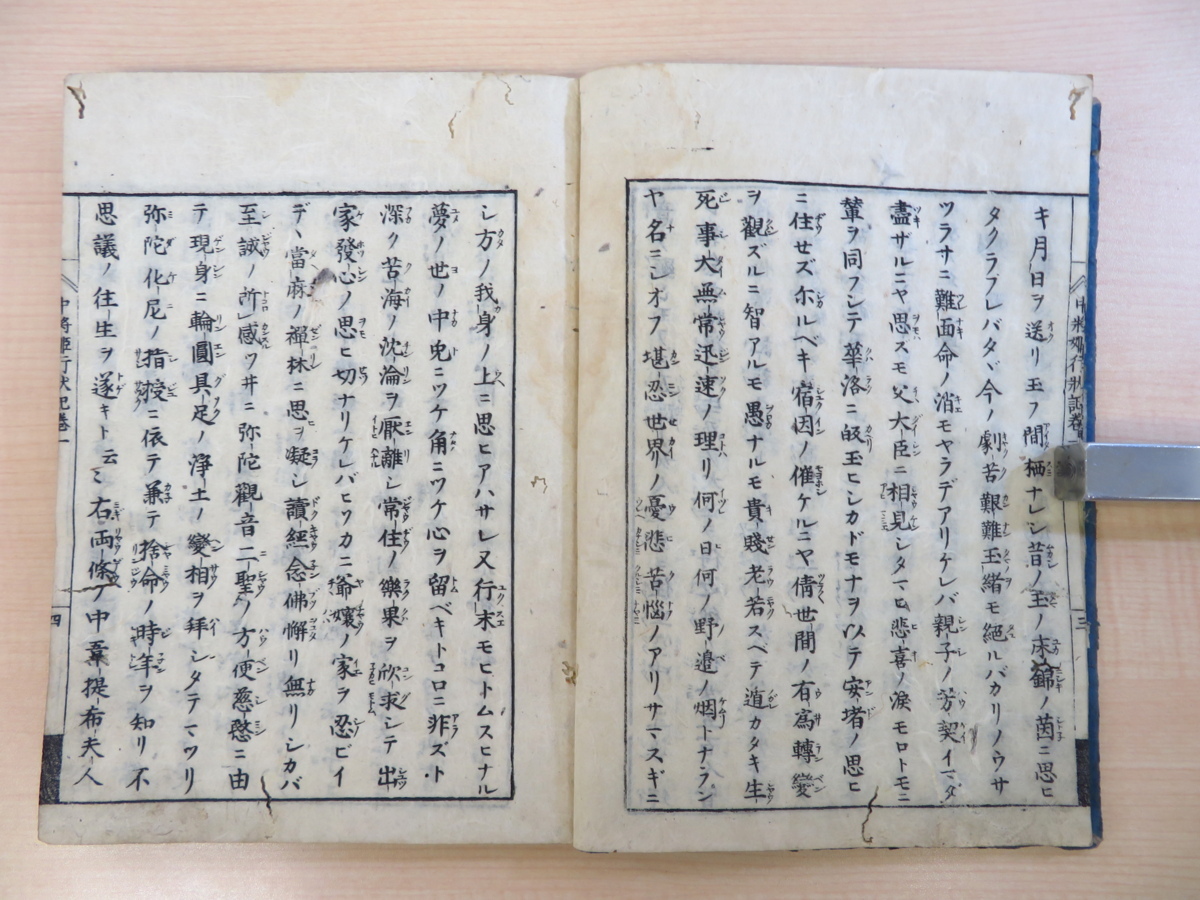 キ月日ヲ送リ玉フ間栖ナレシ昔ノ玉ノ床錦ノ茵ニ思ヒ
タクラブレバタヾ今ノ劇苦艱難玉緒モ絕ルバカリノウサ
ツラサニ難面命ノ消モヤラデアリケレバ親子ノ芳契イマダ
盡ザルニヤ思スモ父大臣ニ相見シタマヒ悲喜ノ淚モロトモニ
輦ヲ同フシテ華洛ニ皈玉ヒシカドモナヲ以テ安堵ノ思ヒ
ニ住セズ尓ルベキ宿因ノ催ケルニヤ倩世間ノ有爲轉變
ヲ觀ズルニ智アルモ愚ナルモ貴賤老若スベテ遁カタキ生
死事大無常迅速ノ理リ何ノ日何ノ野邉ノ烟トナラン
ヤ名ニシオフ堪忍世界ノ憂悲苦惱ノアリサマスギニ
中將姬行狀記卷一
三
シ方ノ我身ノ上ニ思ヒアハサレ又行末モヒトムスヒナル
夢ノ世ノ中兎ニツケ角ニツケ心ヲ留ベキトコロニ非ズト
深ク苦海ノ沈淪ヲ厭離シ常住ノ樂果ヲ欣求シテ出
家發心ノ思ヒ切ナリケレバヒソカニ爺孃ノ家ヲ忍ビイ
デヽ當麻ノ禪林ニ思ヲ凝シ讀經念佛懈リ無リシカバ
至誠ノ所感ツヰニ弥陀觀音二聖ノ方便慈愍ニ由
テ現身ニ輪圓具足ノ淨土ノ變相ヲ拜シタテマツリ
弥陀化尼ノ指授ニ依テ兼テ捨命ノ時年ヲ知リ不
思議ノ往生ヲ遂キト云々右兩條ノ中韋提布夫人
中將姬行狀記卷一
四